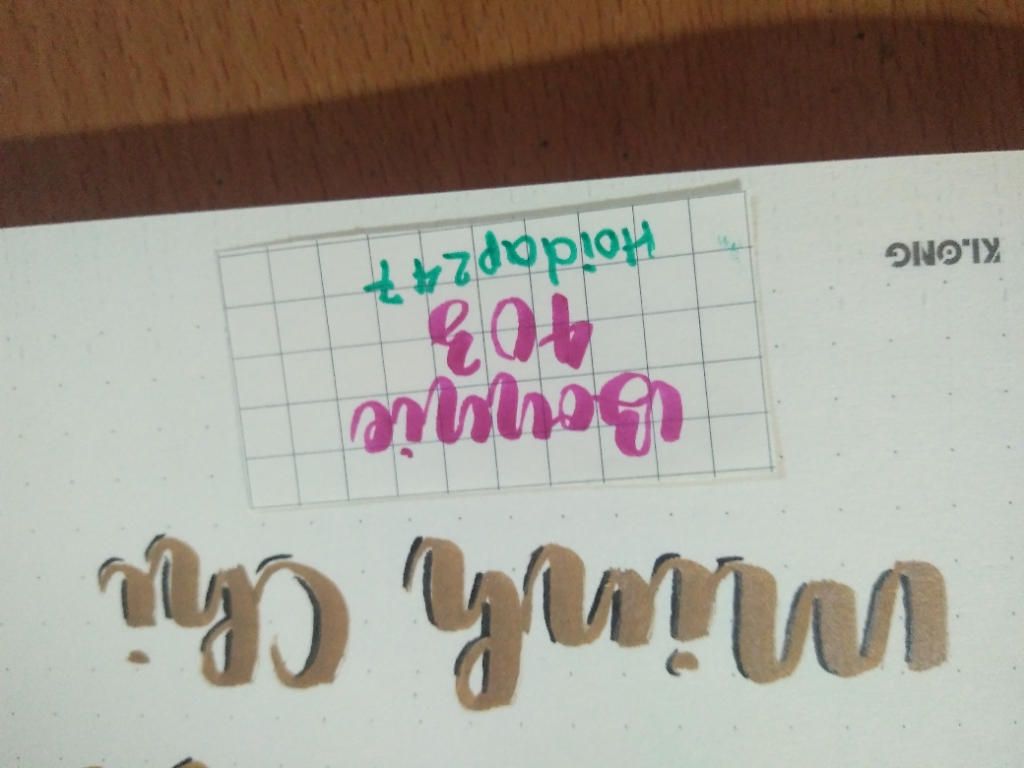 Minh Chi
Bonnie
403
Hoidap247
KLONG